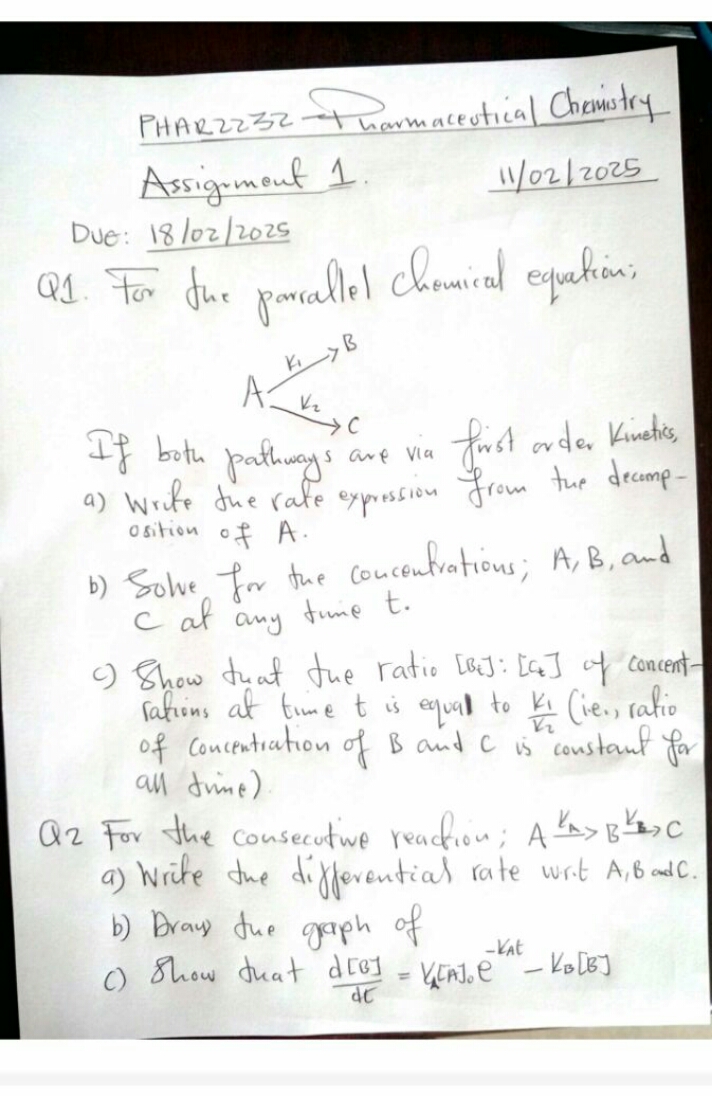 PHAR2232 - Pharmaceutical Chemistry
Assignment 1. 11/02/2025
Due: 18/02/2025
Q1. For the parallel chemical equation;
K₁ B
A
K₂
C
If both pathways are via first order Kinetics,
a) Write the rate expression from the decomp-
osition of A.
b) Solve for the concentrations; A, B, and
C at any time t.
c) Show that the ratio [Bt]: [Ct] of concent-
rations at time t is equal to K₁/K₂ (ie., ratio
of concentration of B and C is constant for
all time)
Q2 For the consecutive reaction; A -KA-> B -KB-> C
a) Write the differential rate w.r.t A, B and C.
b) Draw the graph of
c) Show that d[B]/dt = KA[A]₀e^-KAt - KB[B]